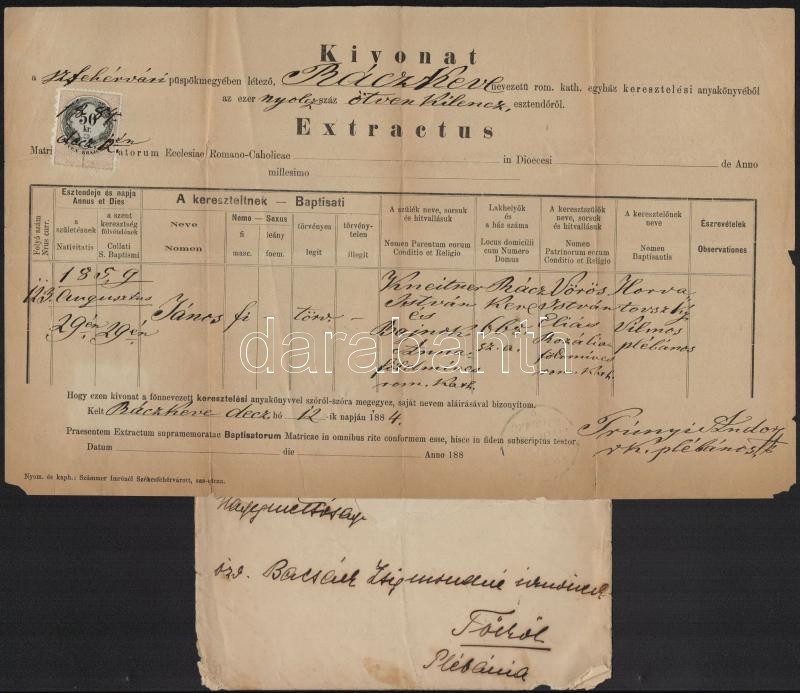 Kivonat
a szfehérvári püspökmegyében létező, Ráczkeve nevezetű rom. kath. egyház keresztelési anyakönyvéből
az ezer nyolczszáz ötven kilencz, esztendőről.
50
kr.
1884
decz. 12 én
Extractus
Matri atorum Ecclesiae Romano-Catholicae in Dioecesi de Anno
millesimo
Folyó szám
Nrus curr.
Esztendeje és napja
Annus et Dies
a születésnek
Nativitatis
a szent keresztség fölvételének
Collati S. Baptismi
A kereszteltnek — Baptisati
Neve
Nomen
Neme — Sexus
fi
masc.
leány
foem.
törvényes
legit
törvény-telen
illegit
A szülék neve, sorsuk és hitvallásuk
Nomen Parentum eorum Conditio et Religio
Lakhelyök és a ház száma
Locus domicilii cum Numero Domus
A keresztszülők neve, sorsuk és hitvallásuk
Nomen Patrinorum eorum Conditio et Religio
A keresztelőnek neve
Nomen Baptisantis
Észrevételek
Observationes
123.
1859
Augusztus
29 én
29 én
János
fi
-
törv.
-
Kneitner
István
és
Bajnok
Anna
földmíves
rom. kath.
Rácz
keve
sz. a.
Vörös
István
Eliás
Rozália
földmíves
rom. kath.
Horva
tovszky
Vilmos
plébános
Hogy ezen kivonat a fönnevezett keresztelési anyakönyvvel szóról-szóra megegyez, saját nevem aláírásával bizonyítom.
Kelt Ráczkeve decz. hó 12 -ik napján 1884.
Praesentem Extractum supramemoratae Baptisatorum Matricae in omnibus rite conformem esse, hisce in fidem subscriptus testor.
Datum die Anno 188
Andor
plébános
Nyom. és kaph.: Számmer Imrénél Székesfehérvárott, sas-utcza.
darabanth
Nagyméltóságú
özv. Zsigmondné
Plébánia